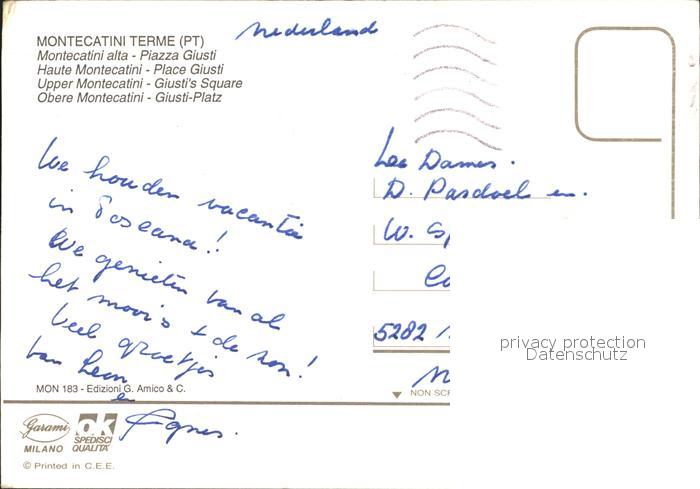 nederland
MONTECATINI TERME (PT)
Montecatini alta - Piazza Giusti
Haute Montecatini - Place Giusti
Upper Montecatini - Giusti's Square
Obere Montecatini - Giusti-Platz
We houden vacantie
in Toscana!
We genieten van al
het moois + de zon!
Veel groetjes
van Leon
en
Agnes.
Dames.
D. Pardoel en.
W.
5282
privacy protection
Datenschutz
MON 183 - Edizioni G. Amico & C.
NON SCR
Garami
MILANO
ok
SPEDISCI
QUALITA'
© Printed in C.E.E.